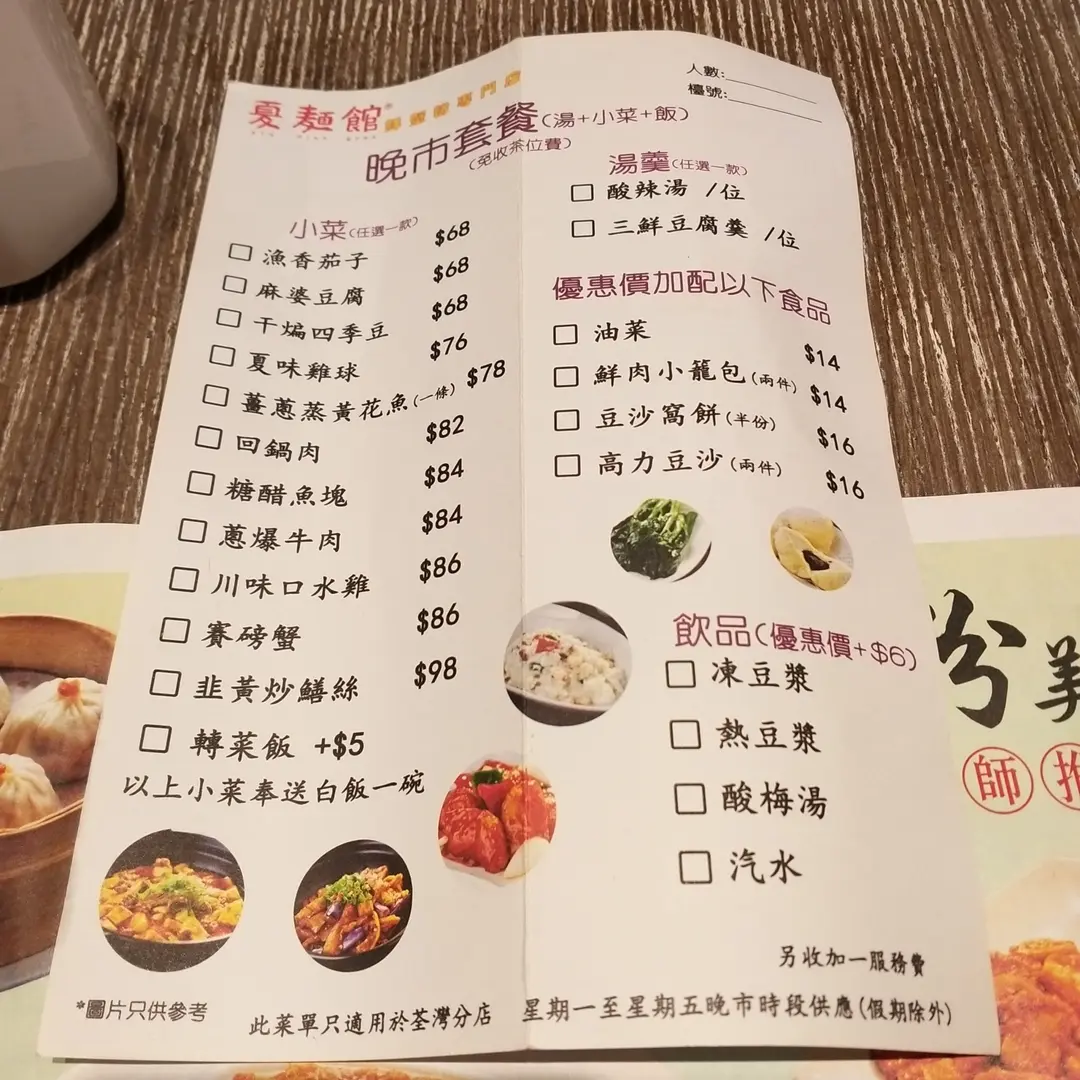 夏麵館
人數:
檯號:
晚市套餐(湯+小菜+飯)
(免收茶位費)
小菜(任選一款)
漁香茄子 $68
麻婆豆腐 $68
干煸四季豆 $68
夏味雞球 $76
薑蔥蒸黃花魚(一條) $78
回鍋肉 $82
糖醋魚塊 $84
蔥爆牛肉 $84
川味口水雞 $86
賽磅蟹 $86
韭黃炒鱔絲 $98
轉菜飯 +$5
以上小菜奉送白飯一碗
湯羹(任選一款)
酸辣湯 /位
三鮮豆腐羹 /位
優惠價加配以下食品
油菜 $14
鮮肉小籠包(兩件) $14
豆沙窩餅(半份) $16
高力豆沙(兩件) $16
飲品(優惠價+$6)
凍豆漿
熱豆漿
酸梅湯
汽水
另收加一服務費
*圖片只供參考
此菜單只適用於荃灣分店
星期一至星期五晚市時段供應(假期除外)
師